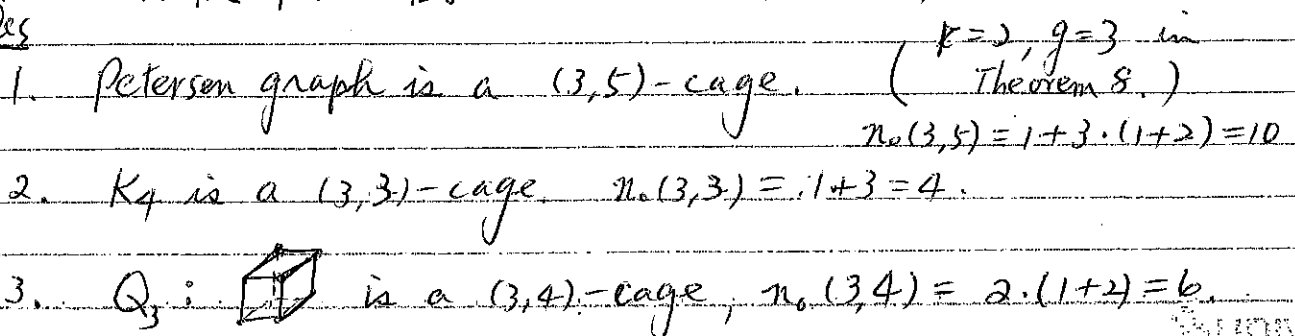 k=2, g=3 in
1. Petersen graph is a (3,5)-cage. ( Theorem 8. )
n₀(3,5) = 1+3·(1+2) = 10
2. K₄ is a (3,3)-cage. n₀(3,3) = 1+3 = 4.
3. Q₃ : is a (3,4)-cage, n₀(3,4) = 2·(1+2) = 6.